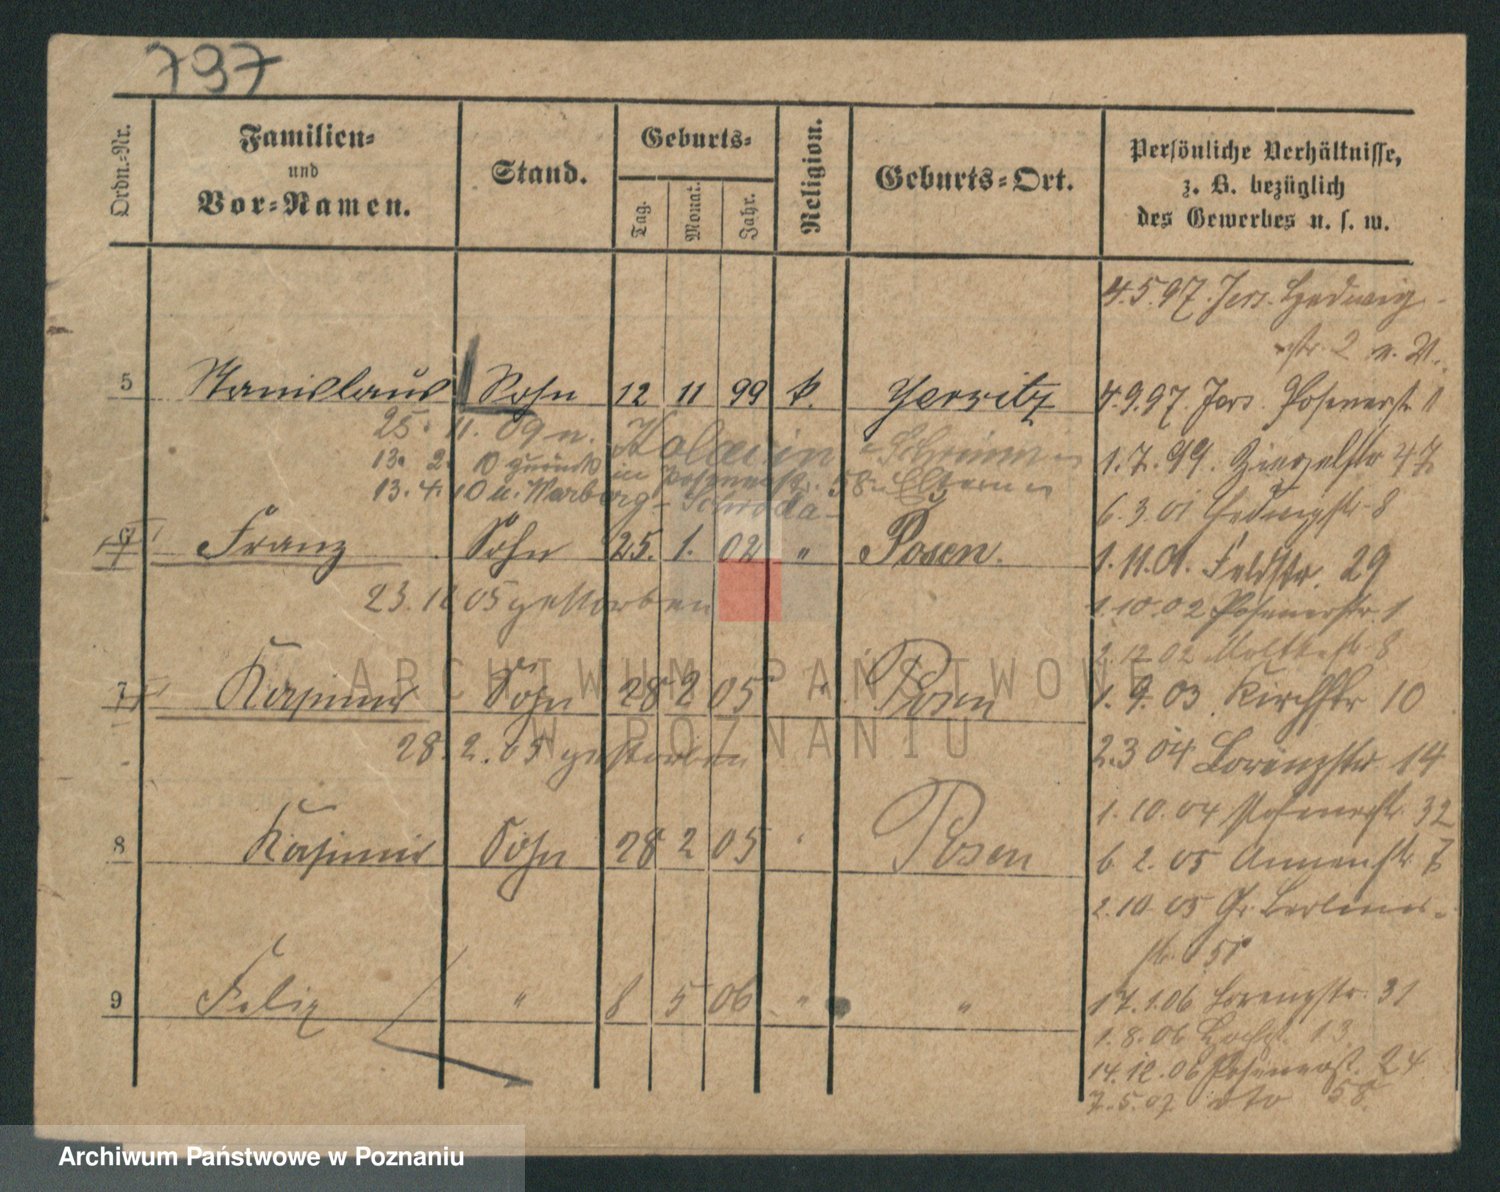 737
Ordn.-Nr.
Familien-
und
Vor-Namen.
Stand.
Geburts-
Tag.
Monat.
Jahr.
Religion.
Geburts-Ort.
Persönliche Verhältnisse,
z. B. bezüglich
des Gewerbes u. s. w.
4.5.97. Jers. Hedwig-
str. 2 n. V.
5 Stanislaus Sohn 12 11 99 k. Yersitz
4.9.97. Jers. Posenerstr 1
25. 11. 09 n. Schrimm
13. 2. 10 zurück in Posenerstr. 58 Eltern
1.7.99. 47
13. 4. 10 n. Warburg - Schroda -
6.3.01 Hedwigstr 8
6 Franz Sohn 25. 1. 02 " Posen.
1.11.01. Feldstr. 29
23. 11 05 gestorben
1.10.02 Posenerstr. 1
2.12.02 Moltkestr 8
7 Kasimir Sohn 28 2 05 " Posen
1.9.03. Kirchstr 10
28. 2. 05 gestorben
2.3 04 Lorenzstr. 14
1.10.04 Posenerstr. 32
8 Kasimir Sohn 28 2 05 " Posen
6 2. 05 Annenstr. 7
2.10 05 Gr. Berliner-
str. 51
9 Felix " 8 5 06 " "
17.1.06 Lorenzstr. 31
1.8.06 13
14.12.06 Posenerst. 24
7.5.07 dto 58.
ARCHIWUM PAŃSTWOWE
W POZNANIU
Archiwum Państwowe w Poznaniu